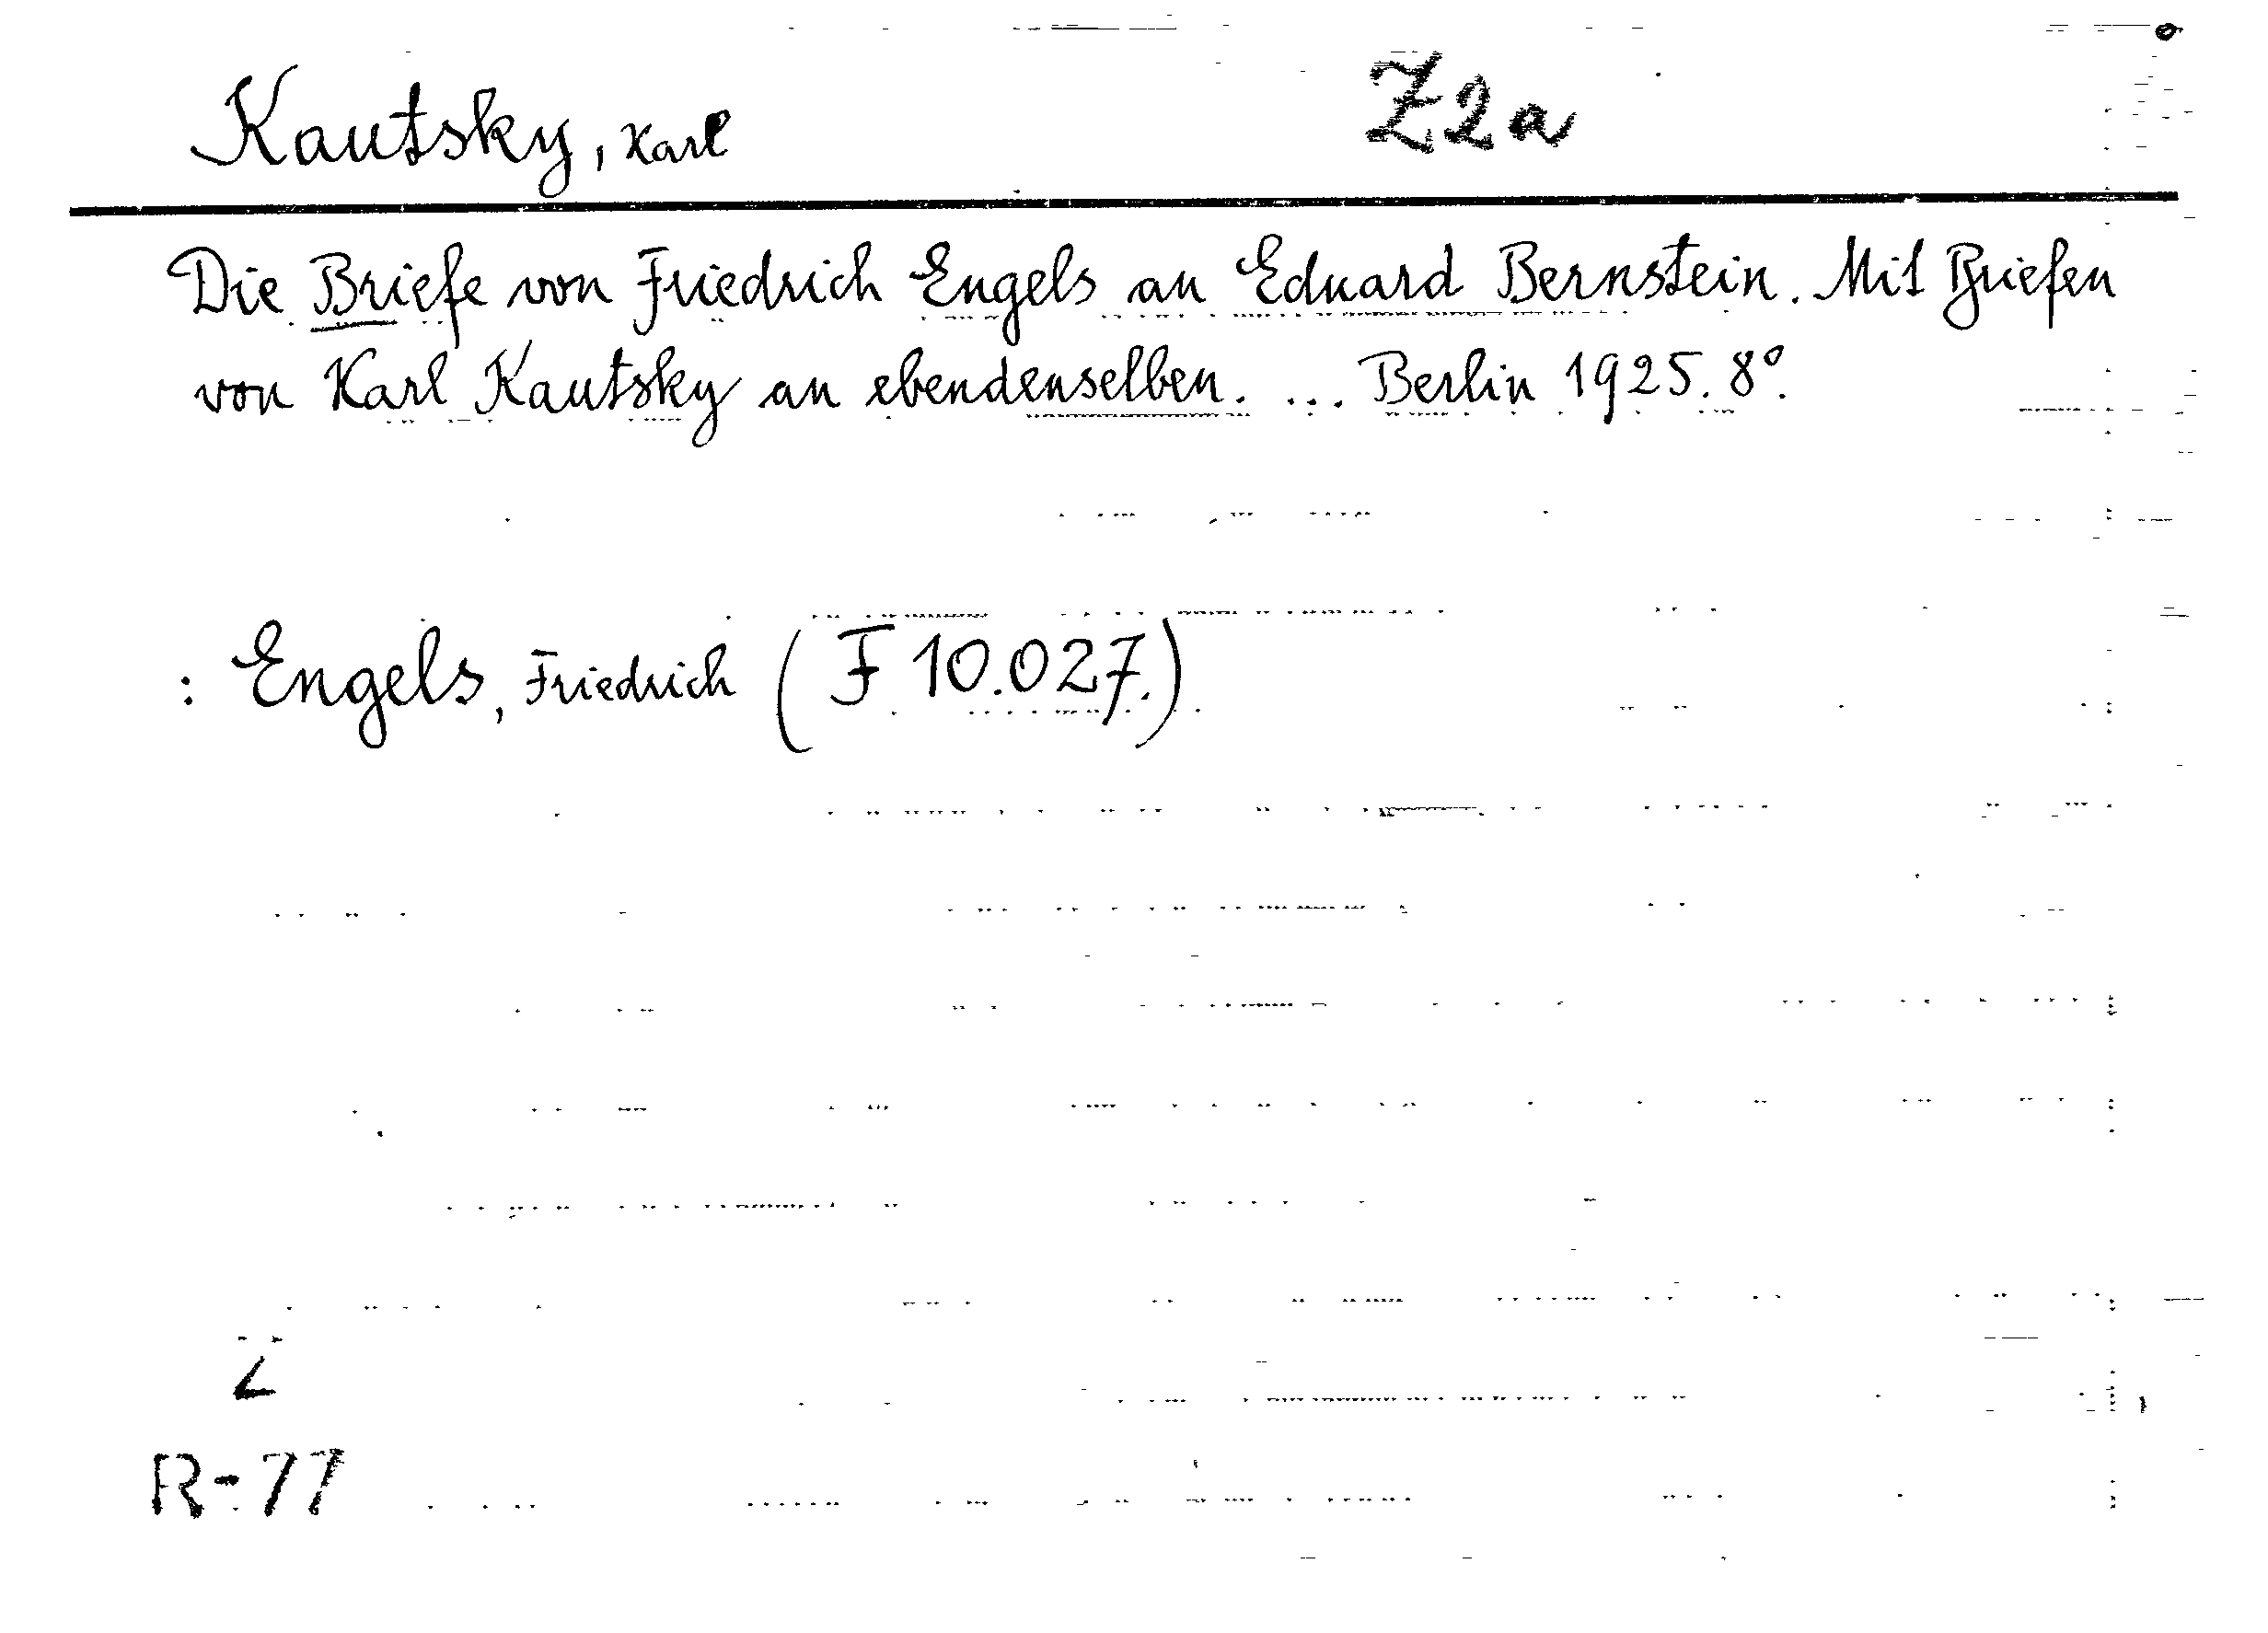 Kautsky, Karl Z2a
Die Briefe von Friedrich Engels an Eduard Bernstein. Mit Briefen
von Karl Kautsky an ebendenselben. ... Berlin 1925. 8°.
: Engels, Friedrich (F 10.027.)
Z
R-77